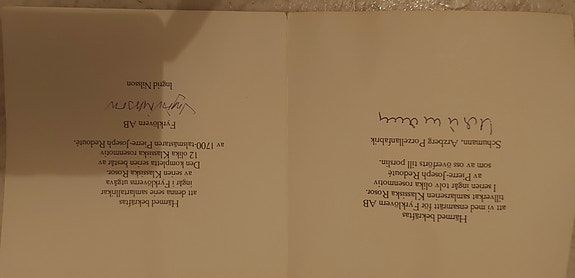 Härmed bekräftas
att vi med ensamrätt för Fyrklövern AB
tillverkat samlarserien Klassiska Rosor.
I serien ingår tolv olika rosenmotiv
av Pierre-Joseph Redouté
som av oss överförts till porslin.
Schumann, Arzberg Porzellanfabrik
Härmed bekräftas
att denna serie samlartallrikar
ingår i Fyrklöverns utgåva
av serien Klassiska Rosor.
Den kompletta serien består av
12 olika Klassiska rosenmotiv
av 1700-talsmästaren Pierre-Joseph Redouté.
Fyrklövern AB
Ingrid Nilsson
Ingrid Nilsson